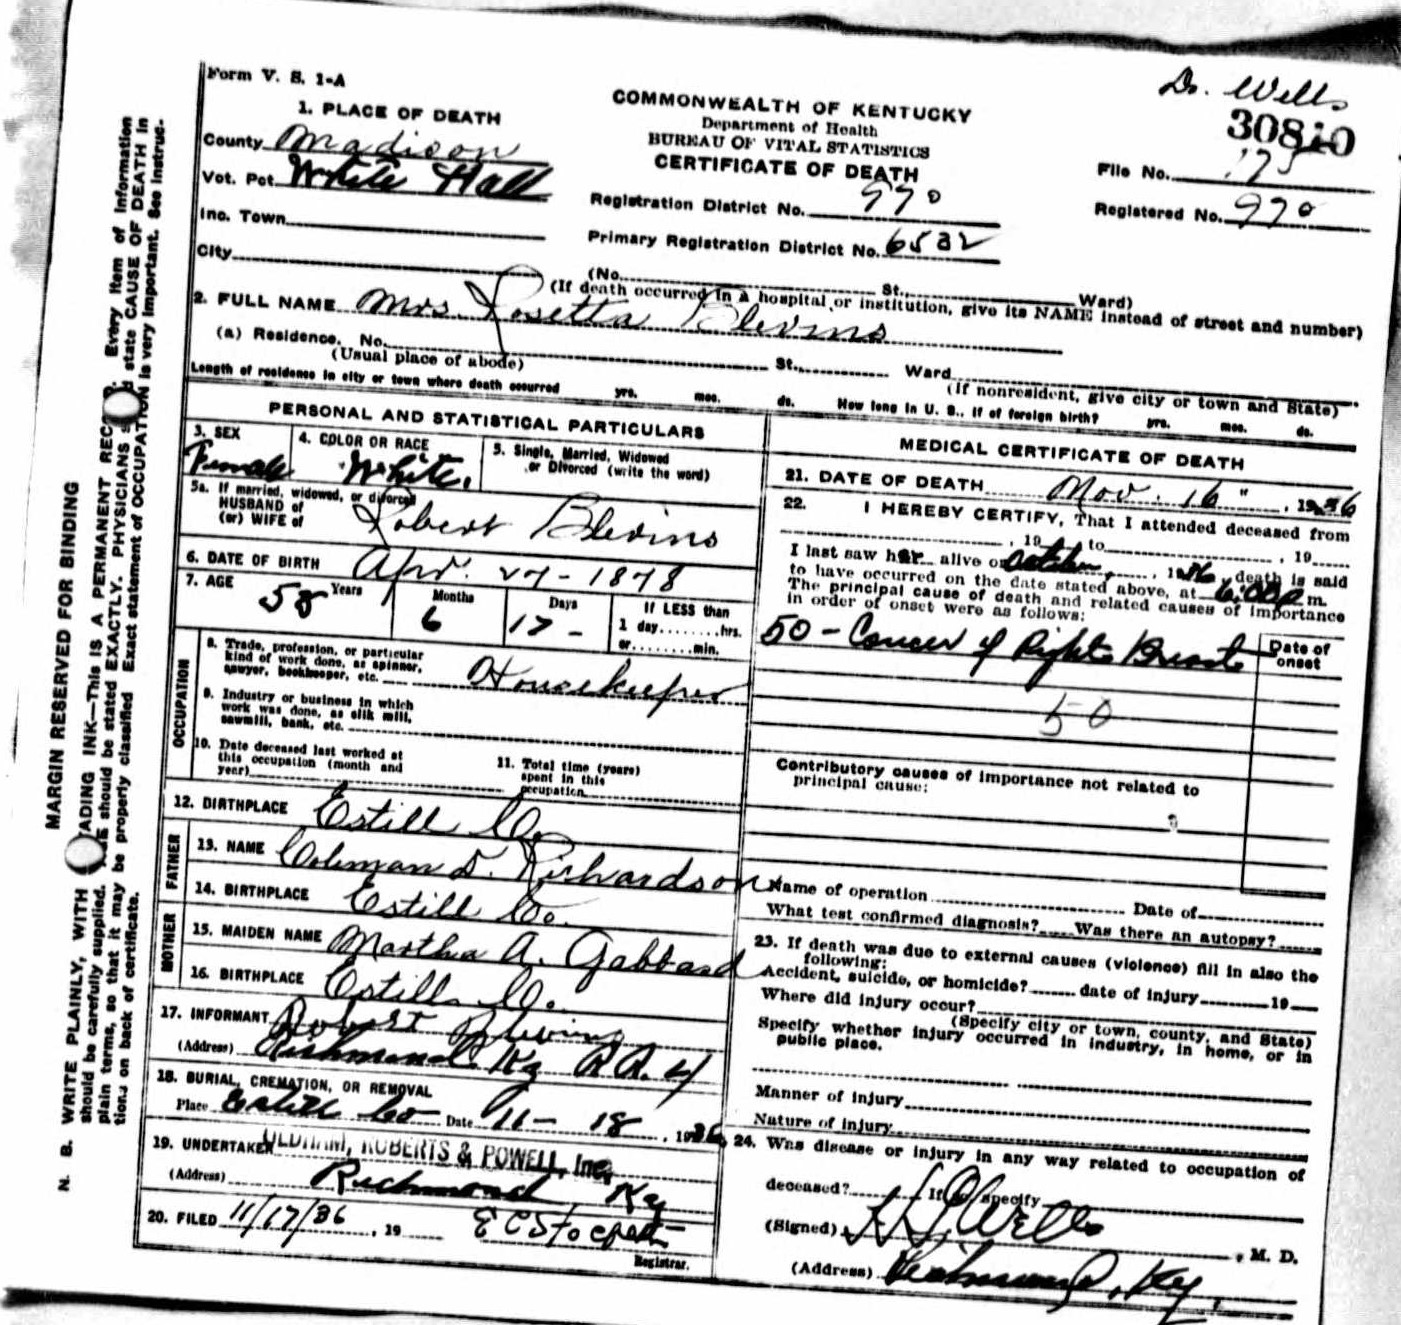 Dr. Wells
30810
Form V. S. 1-A
COMMONWEALTH OF KENTUCKY
Department of Health
BUREAU OF VITAL STATISTICS
CERTIFICATE OF DEATH
File No. 175
Registered No. 970
Registration District No. 970
Primary Registration District No. 6532
1. PLACE OF DEATH
County Madison
Vot. Pct. White Hall
Inc. Town
City
(No. St., Ward)
(If death occurred in a hospital or institution, give its NAME instead of street and number)
2. FULL NAME Mrs. Rosetta Blevins
(a) Residence. No. St., Ward
(Usual place of abode) (If nonresident, give city or town and State)
Length of residence in city or town where death occurred yrs. mos. ds. How long in U. S., if of foreign birth? yrs. mos. ds.
PERSONAL AND STATISTICAL PARTICULARS
3. SEX
Female
4. COLOR OR RACE
White.
5. Single, Married, Widowed
or Divorced (write the word)
5a. If married, widowed, or divorced
HUSBAND of
(or) WIFE of Robert Blevins
6. DATE OF BIRTH Apr. 27 - 1878
7. AGE 58 Years 6 Months 17 - Days
If LESS than
1 day........hrs.
or........min.
OCCUPATION
8. Trade, profession, or particular
kind of work done, as spinner,
sawyer, bookkeeper, etc. Housekeeper
9. Industry or business in which
work was done, as silk mill,
sawmill, bank, etc.
10. Date deceased last worked at
this occupation (month and
year)
11. Total time (years)
spent in this
occupation
12. BIRTHPLACE Estill Co.
FATHER
13. NAME Coleman D. Richardson
14. BIRTHPLACE Estill Co.
MOTHER
15. MAIDEN NAME Martha A. Gabbard
16. BIRTHPLACE Estill Co.
17. INFORMANT Robert Blevins
(Address) Richmond Ky R R. 4
18. BURIAL, CREMATION, OR REMOVAL
Place Estill Co Date 11 - 18, 1936
19. UNDERTAKER OLDHAM, ROBERTS & POWELL, Inc.
(Address) Richmond Ky
20. FILED 11/17/36, 19
Registrar.
MEDICAL CERTIFICATE OF DEATH
21. DATE OF DEATH Nov. 16", 1936
22. I HEREBY CERTIFY, That I attended deceased from
, 19 to , 19
I last saw her alive on October, 1936, death is said
to have occurred on the date stated above, at 6:00 p m.
The principal cause of death and related causes of importance
in order of onset were as follows:
Date of
onset
50 - Cancer of Right Breast
50
Contributory causes of importance not related to
principal cause:
Name of operation Date of
What test confirmed diagnosis? Was there an autopsy?
23. If death was due to external causes (violence) fill in also the
following:
Accident, suicide, or homicide? date of injury 19
Where did injury occur?
(Specify city or town, county, and State)
Specify whether injury occurred in industry, in home, or in
public place.
Manner of injury
Nature of injury
24. Was disease or injury in any way related to occupation of
deceased? If so specify
(Signed) Wells, M. D.
(Address) Richmond, Ky.
MARGIN RESERVED FOR BINDING
N. B. WRITE PLAINLY, WITH ADING INK—This is a PERMANENT REC Every item of Information
should be carefully supplied. should be stated EXACTLY. PHYSICIANS state CAUSE OF DEATH in
plain terms, so that it may be properly classified Exact statement of OCCUPATION is very important. See instruc-
tions on back of certificate.